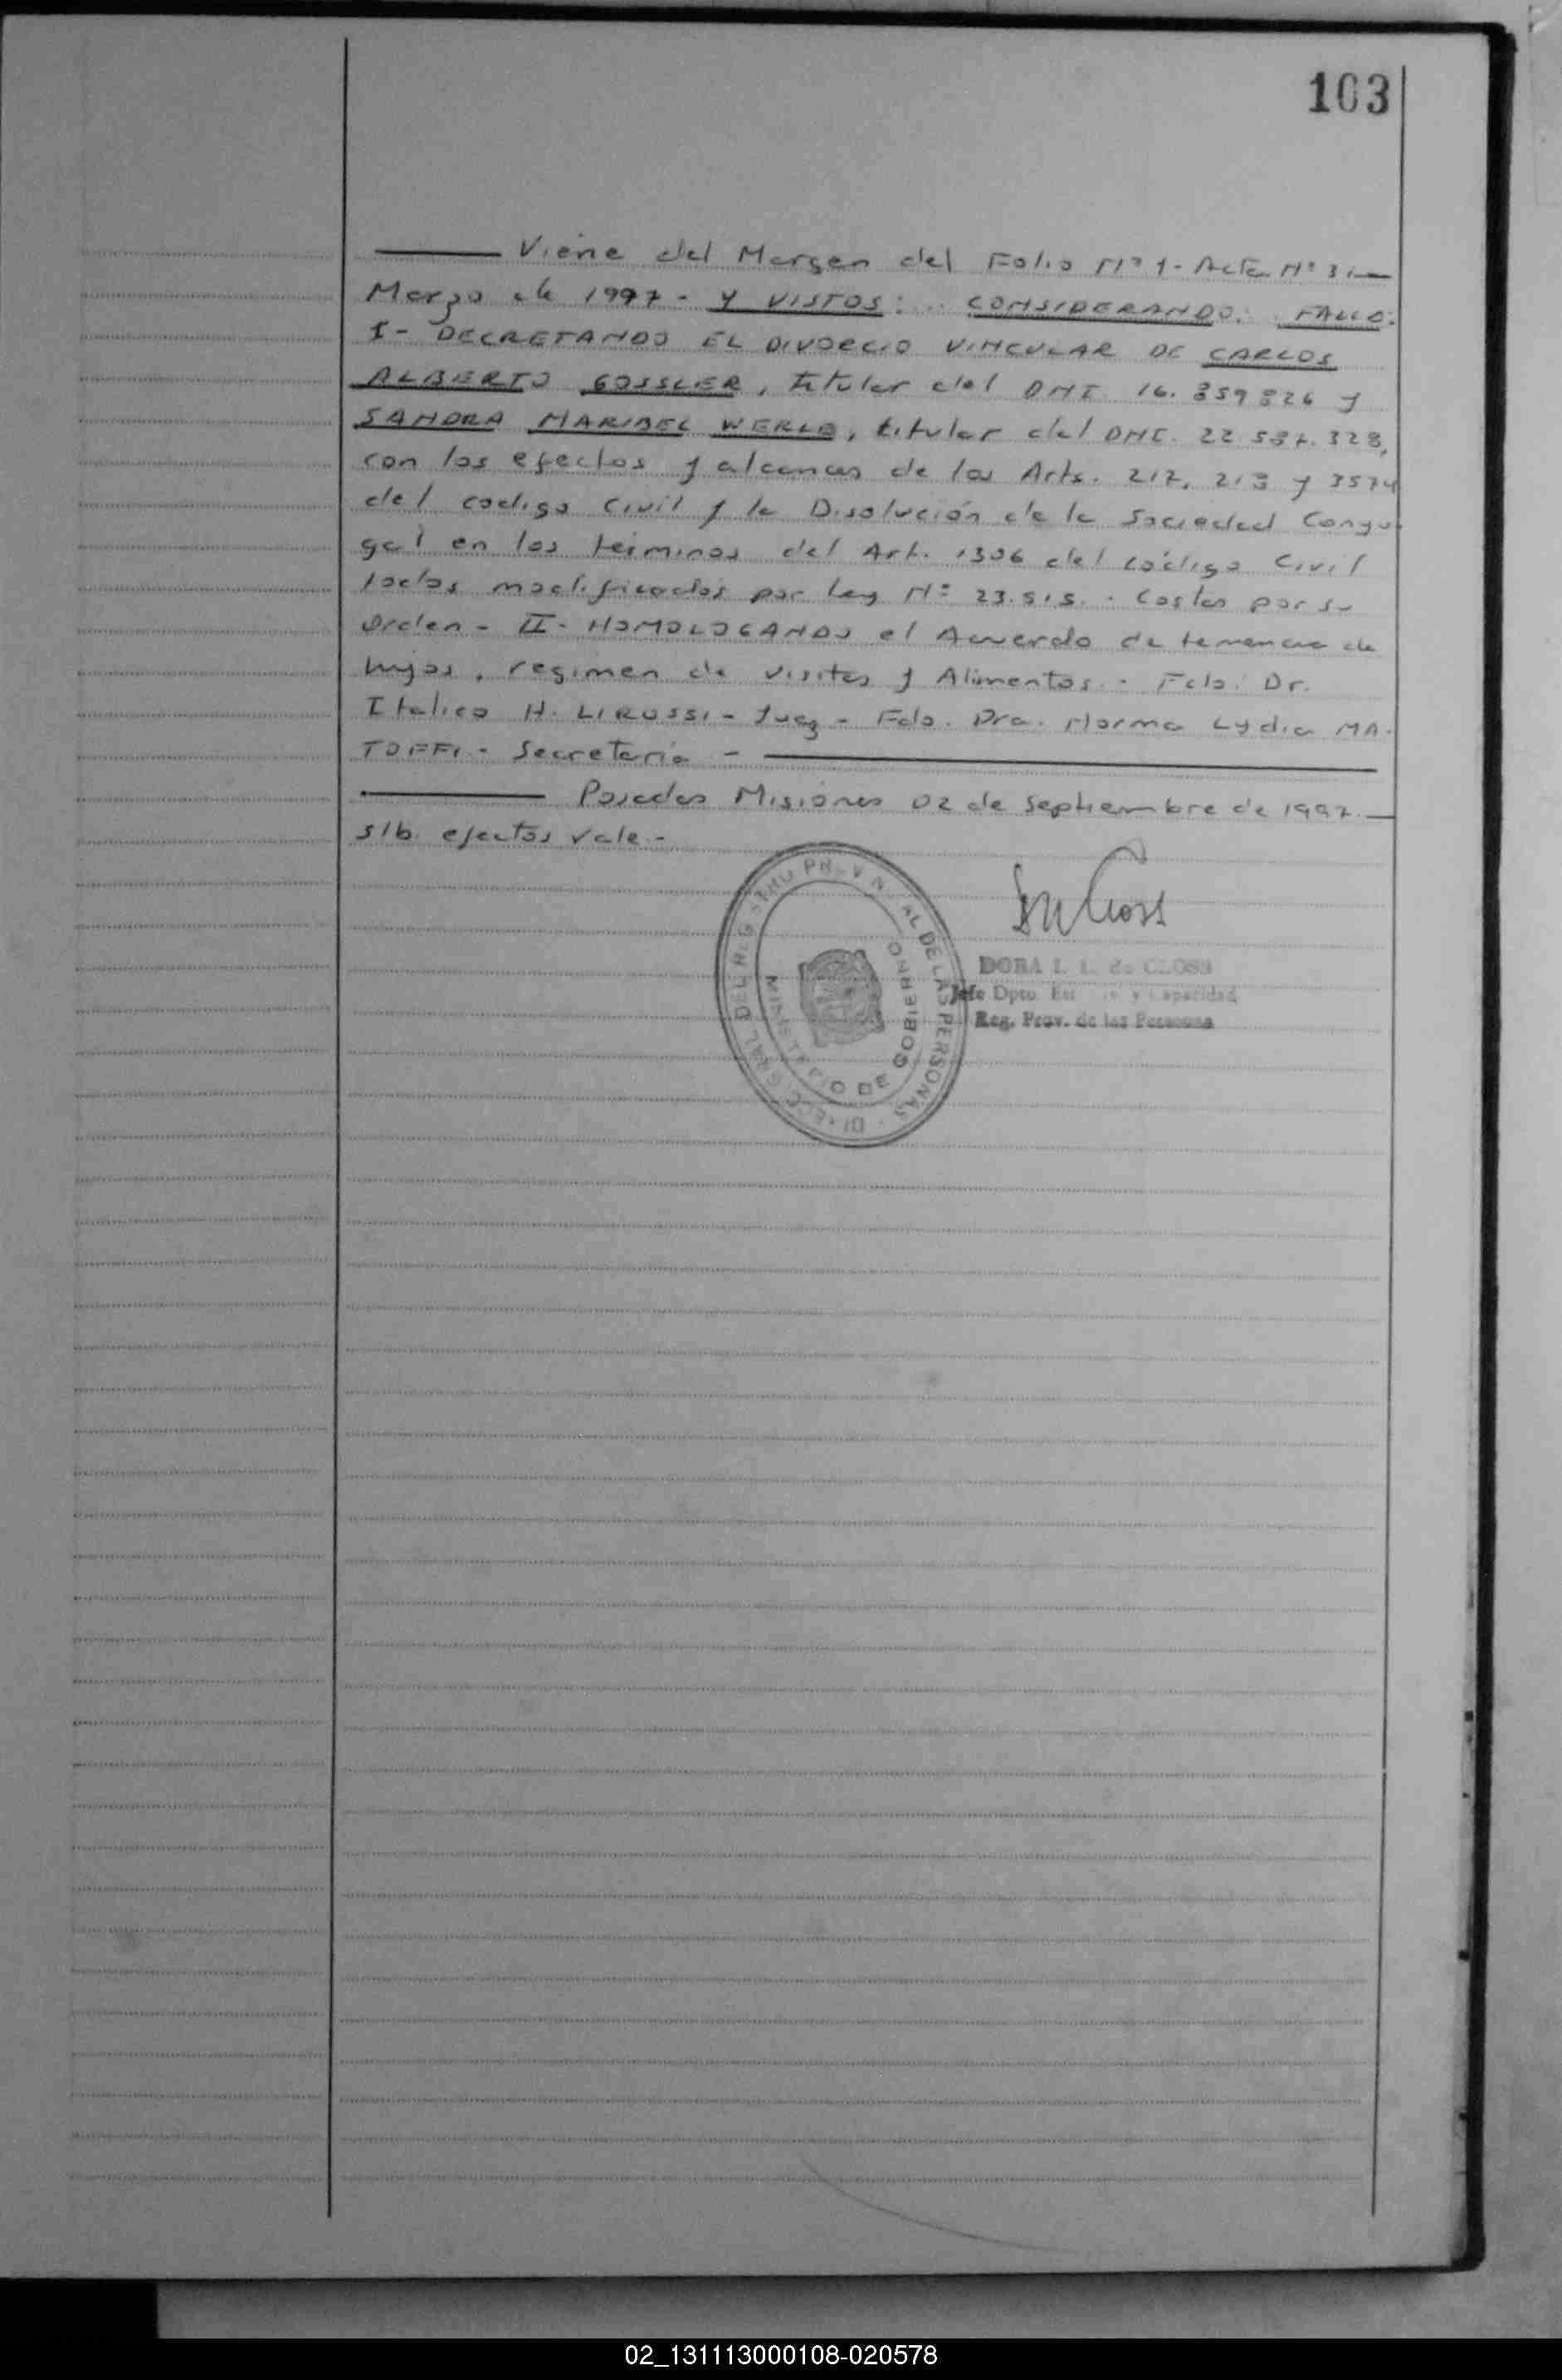 103
Viene del Margen del Folio Nº 1 - Acta Nº 3.
Marzo de 1997 - Y VISTOS: .. CONSIDERANDO: . FALLO:
I - DECRETANDO EL DIVORCIO VINCULAR DE CARLOS
ALBERTO GOSSLER, titular del DNI. 16.859826 y
SANDRA MARIBEL WERLE, titular del DNI. 22.587.328,
con los efectos y alcances de los Arts. 217, 218 y 3574
del codigo Civil y la Disolución de la Sociedad Conyu-
gal en los términos del Art. 1306 del código Civil
todos modificados por Ley Nº 23.515. - Costas por su
Orden - II - HOMOLOGANDO el Acuerdo de tenencia de
hijos, regimen de visitas y Alimentos. - Fdo. Dr.
Italico H. LIROSSI - Juez - Fdo. Dra. Norma Lydia MA-
TOFFI - Secretaria -
Posadas Misiones 02 de septiembre de 1997.
s/b. efectos vale -
DIREC. GRAL DEL REGISTRO PROVINCIAL DE LAS PERSONAS
MINISTERIO DE GOBIERNO
DORA de CLOSS
Jefe Dpto. y Capacidad
Reg. Prov. de las Personas
02_131113000108-020578